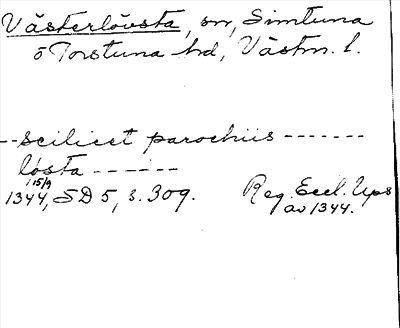 Västerlövsta, sn, Simtuna
o Torstuna hd, Västm. l.
-- scilicet parochiis -------
lösta -------
15/9
1344, SD 5, s. 309. Reg. Eccl. Ups
av 1344.